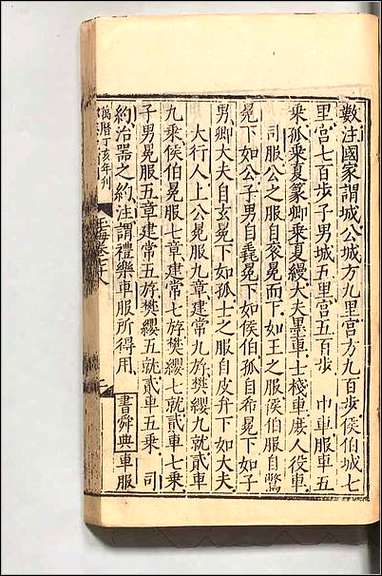 數注國家謂城公城方九里宫方九百步侯伯城七
里宫七百步子男城五里宫五百步 中車服車五
乘孤乘夏篆卿乘夏縵大夫墨車士棧車庶人役車
司服公之服自袞冕而下如王之服侯伯服自鷩
冕下如公子男自毳冕下如侯伯孤自希冕下如子
男卿大夫自玄冕下如孤士之服自皮弁下如大夫
大行人上公冕服九章建常九斿樊纓九就貳車
九乘侯伯冕服七章建常七斿樊纓七就貳車七乘
子男冕服五章建常五斿樊纓五就貳車五乘 司
約治器之約注謂禮樂車服所得用 書舜典車服
萬曆丁亥年刊
玉海卷七十八